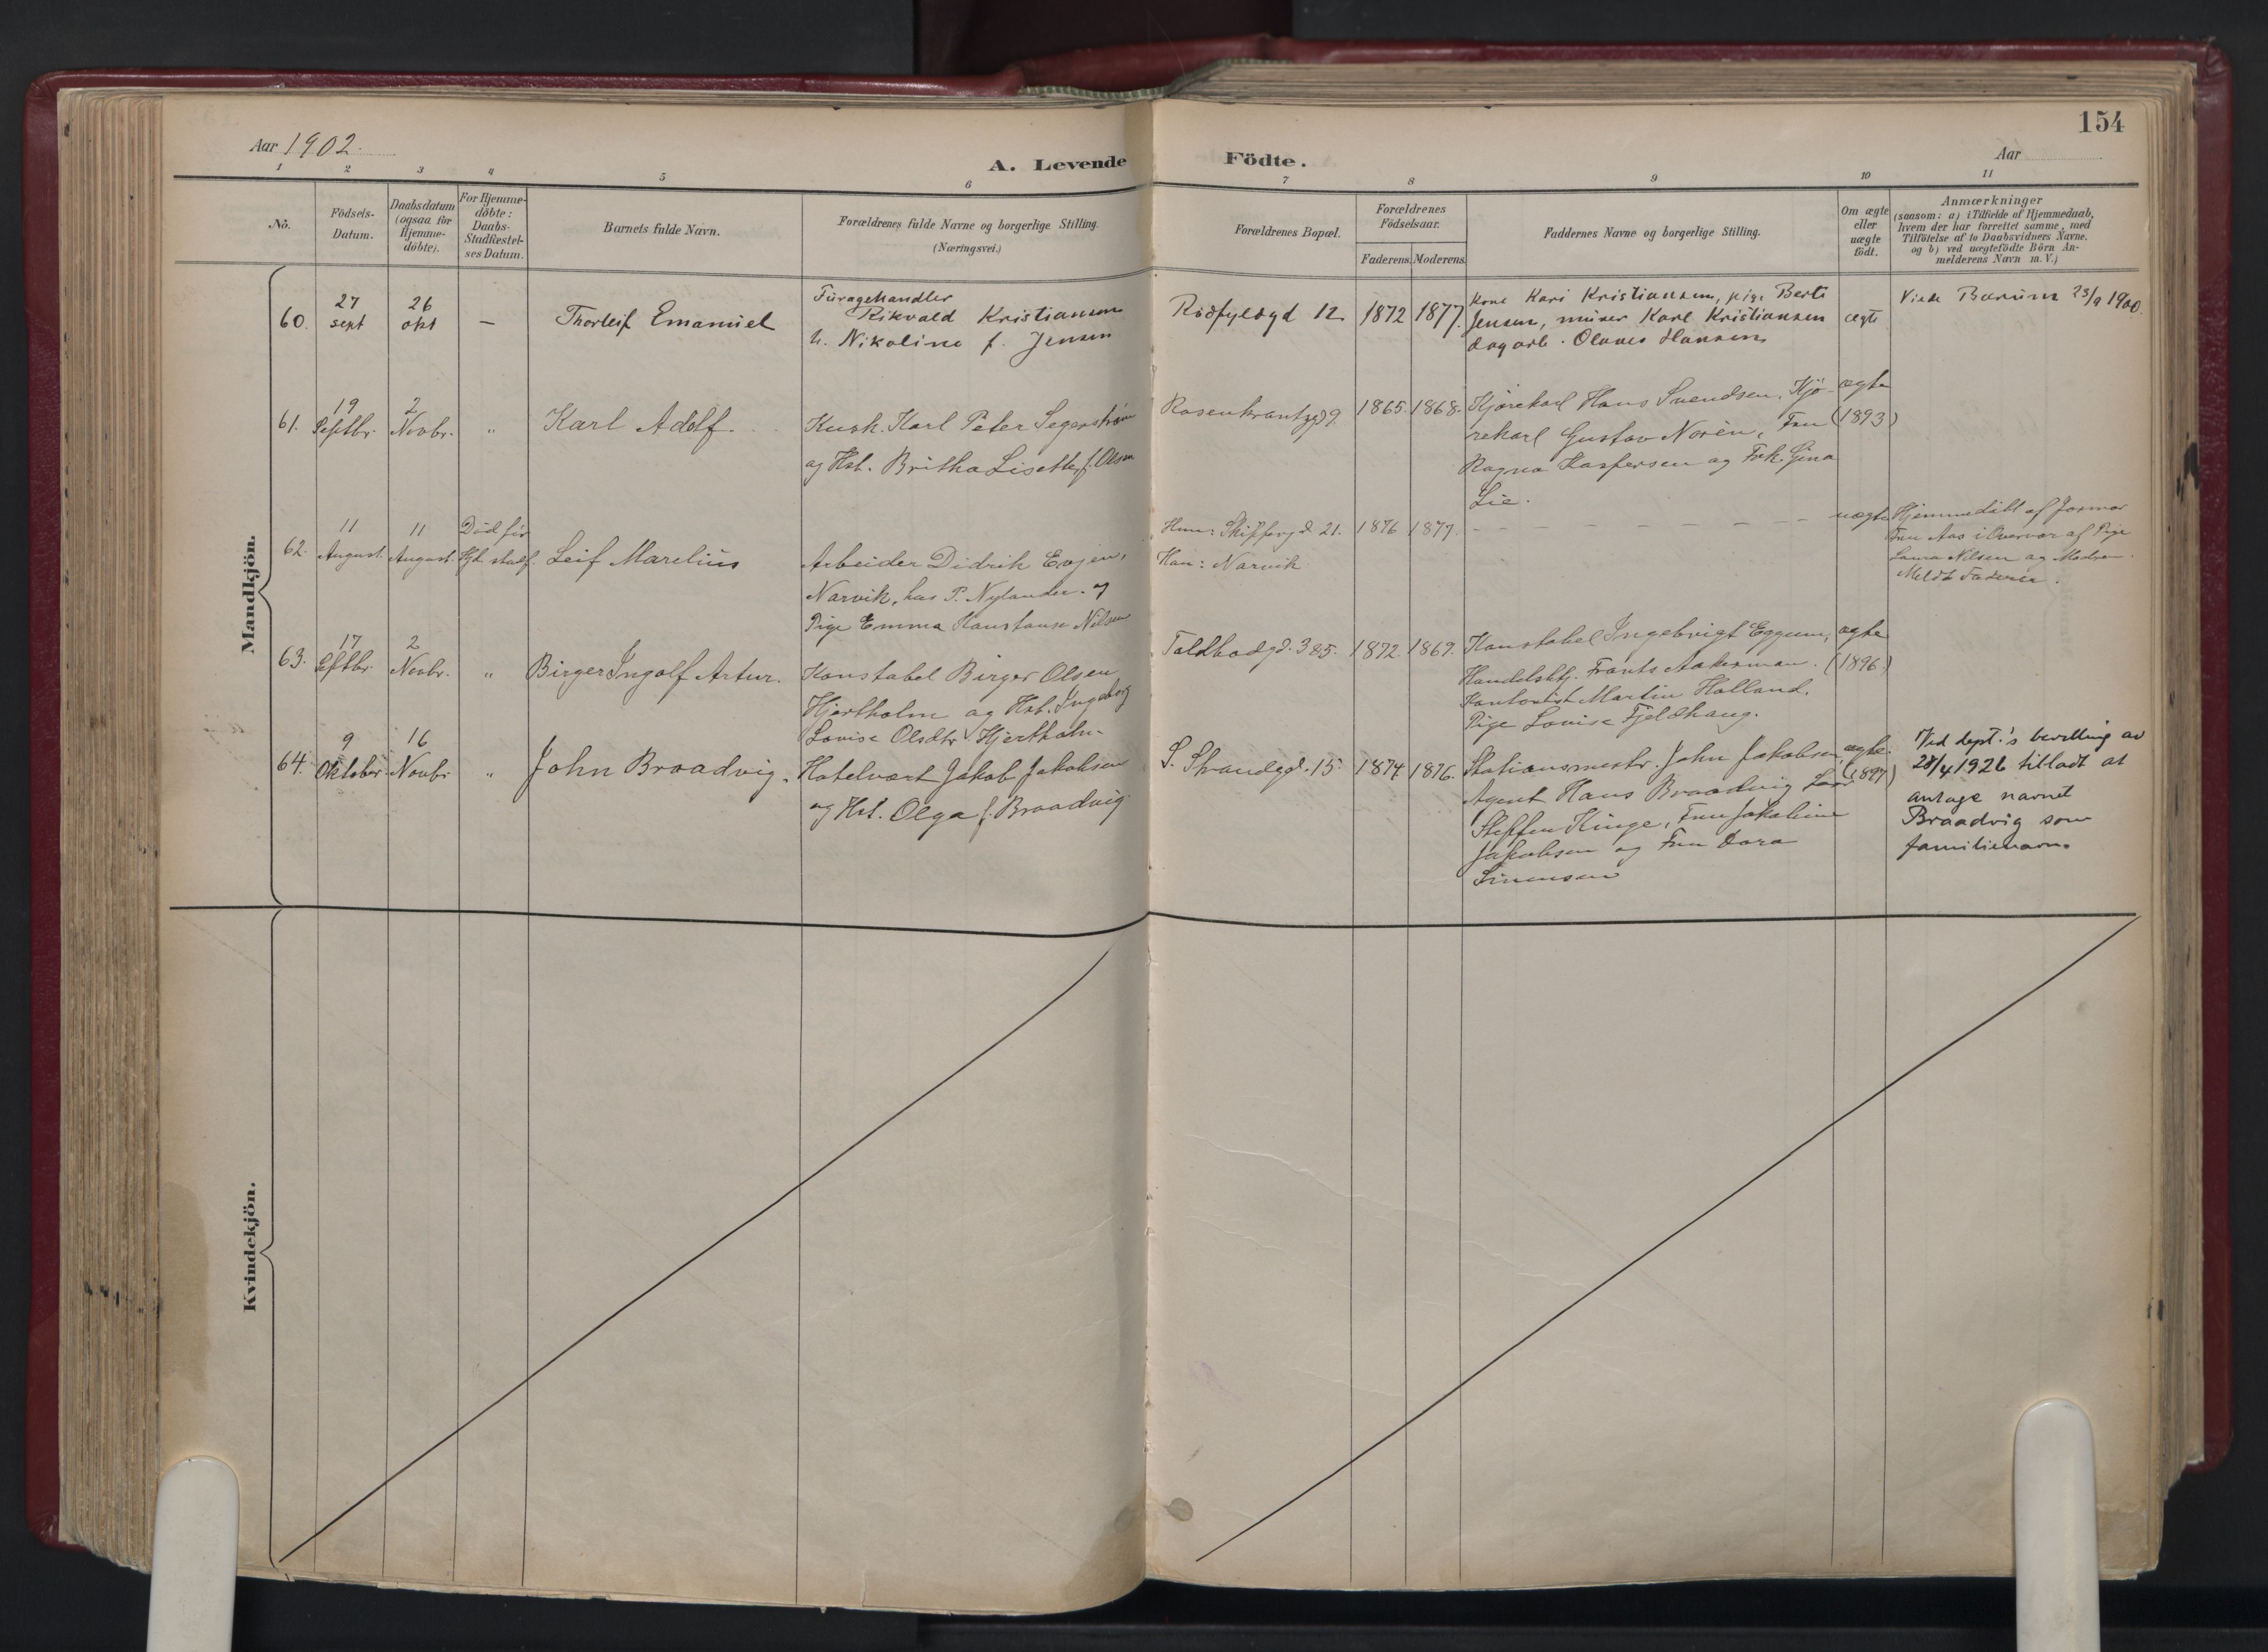 154
Aar 1902.
A. Levende Födte.
Aar
1 2 3 4 5 6 7 8 9 10 11
No.
Födsels-
Datum.
Daabsdatum
(ogsaa for
Hjemme-
döbte).
For Hjemme-
döbte:
Daabs-
Stadfestel-
ses Datum.
Barnets fulde Navn.
Forældrenes fulde Navne og borgerlige Stilling.
(Næringsvei.)
Forældrenes Bopæl.
Forældrenes
Födselsaar.
Faderens. Moderens.
Faddernes Navne og borgerlige Stilling.
Om ægte
eller
uægte
födt.
Anmærkninger
(saasom: a) i Tilfælde af Hjemmedaab,
hvem der har forrettet samme, med
Tilföielse af to Daabsvidners Navne.
og b) ved uægtefödte Börn An-
melderens Navn m. V.)
Mandkjön.
60.
27
sept
26
okt
—
Thorleif Emanuel
Furagehandler
Rikvald Kristiansen
h. Nikoline f. Jensen
Ridfylkgd 12
1872 1877.
kone Kari Kristiansen, pige Berte
Jensen, murer Karl Kristiansen
dagarb. Olaves Hansen
ægte
Viede Bærum 23/9 1900.
61.
19
Septbr.
2
Novbr.
"
Karl Adolf.
Kusk. Karl Peter Segerström
og Hst. Britha Lisette, f. Olsen
Rosenkrantzgd 9.
1865. 1868.
Kjørekarl Hans Svendsen, Kjö-
rekarl Gustav Norèn, Fru
Ragna Kaspersen og Frk. Gina
Lie.
ægte
(1893)
62.
11
August.
11
August.
Död før
Hjd. stadf.
Leif Marelius
Arbeider Didrik Evjen,
Narvik, hos P. Nylander. og
Pige Emma Konstanse Nilsen
Hun: Skippergd. 21.
Han: Narvik
1876 1877.
uægte
Hjemmedöbt af Jormor
Fru Aas i Overvær af Pige
Laura Nilsen og Modren.
Meldt Faderen.
63.
17
Septbr.
2
Novbr.
"
Birger Ingolf Artur.
Konstabel Birger Olsen
Hjertholm og Hst. Ingeborg
Lovise Olsdtr Hjertholm.
Toldbodgd. 385.
1872. 1869.
Konstabel Ingebrigt Eggum,
Handelsbtj. Frants Aakerman.
Kontorist Martin Holland.
Pige Lovise Fjeldhaug.
ægte
(1896.)
64.
9
Oktober
16
Novbr
"
John Braadvig.
Hotelvært Jakob Jakobsen
og Hst. Olga f. Braadvig.
S. Strandgd. 15.
1874 1876.
Stationsmestr. John Jakobsen,
Agent Hans Braadvig
Steffen Kinge, Fru Jakobine
Jakobsen og Fru Dora
Simensen
ægte.
(1897)
Ved dept.'s bevilling av
28/4 1926 tilladt at
antage navnet
Braadvig som
familienavn.
Kvindekjön.